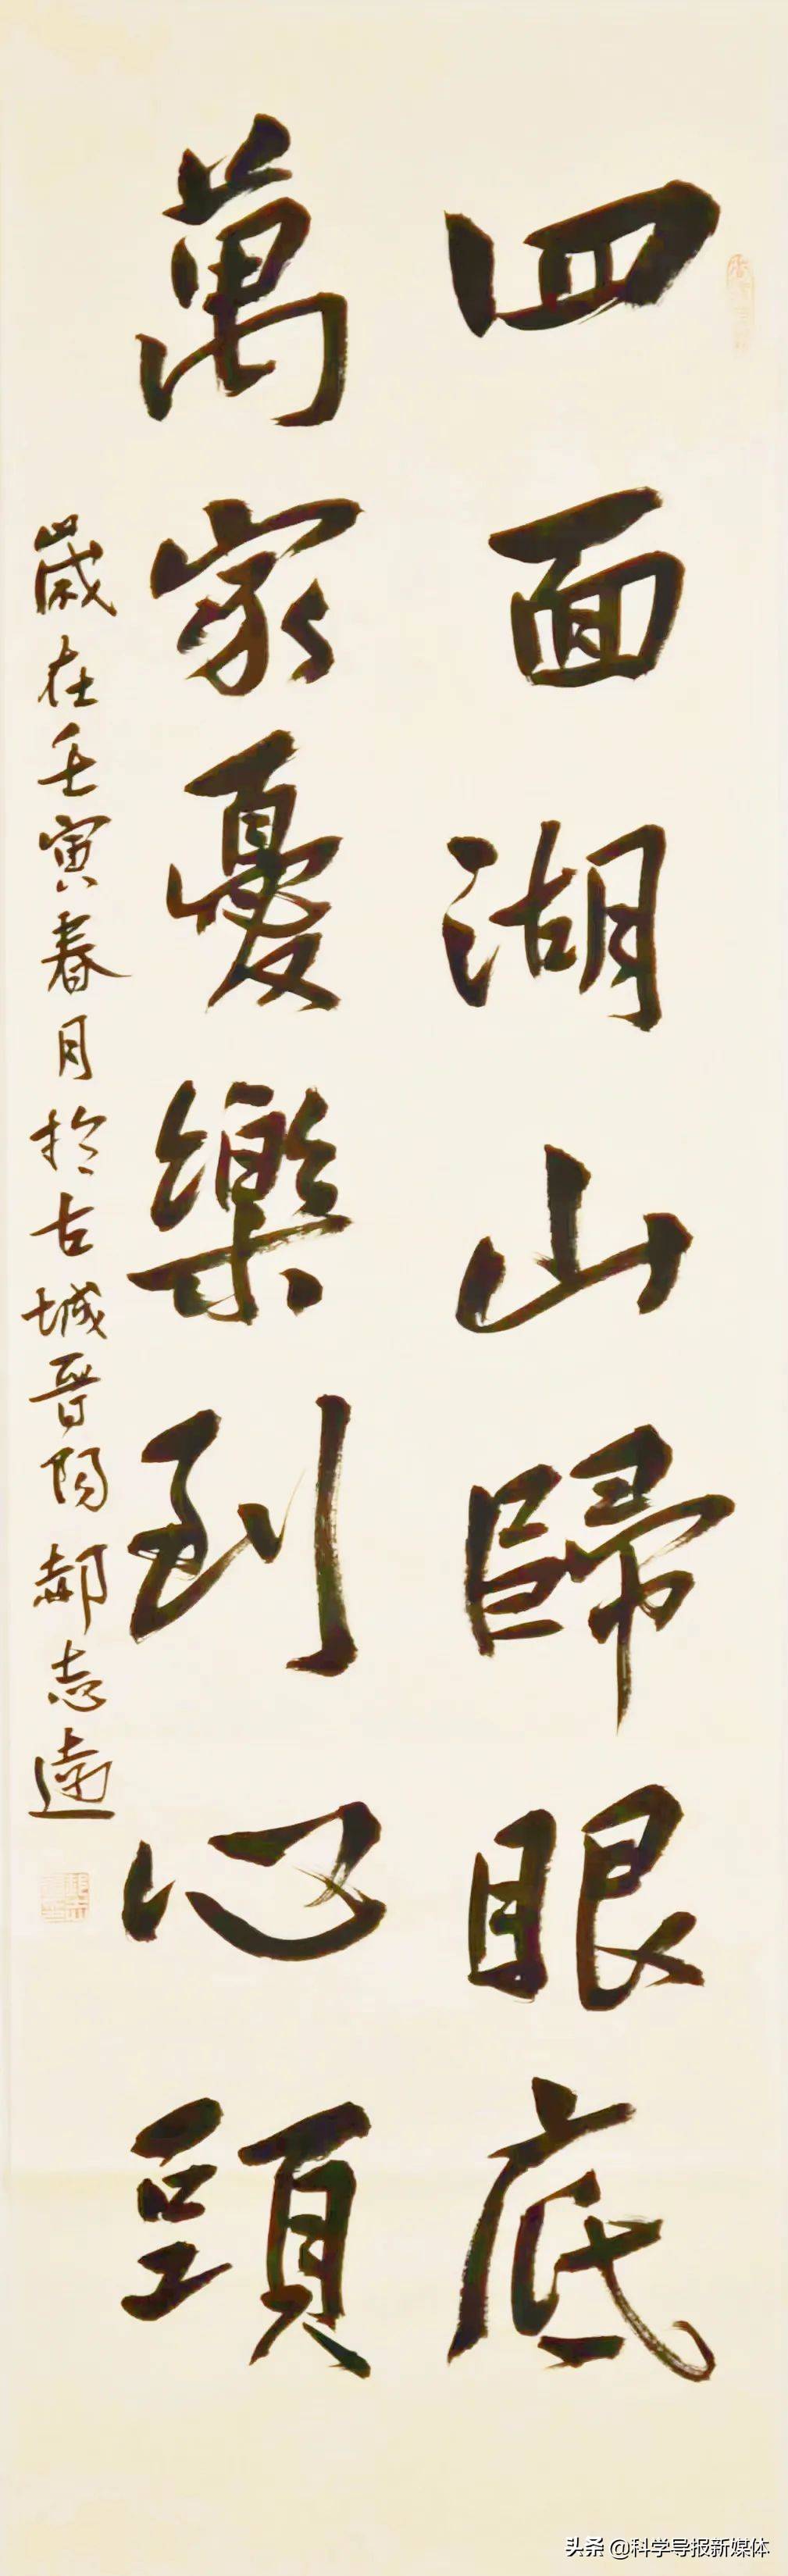 四面湖山歸眼底
萬家憂樂到心頭
歲在壬寅春月於古城晉陽郝志遠
头条 @科学导报新媒体